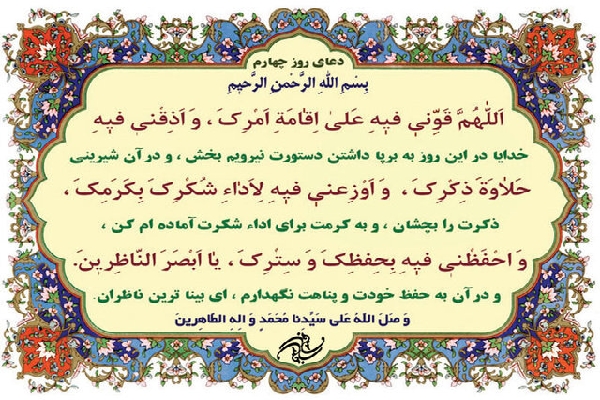 دعای روز چهارم
بِسْمِ اللهِ الرَّحْمنِ الرَّحیمِ
اَللّهُمَّ قَوِّنی فیهِ عَلیٰ اِقامَةِ اَمْرِکَ ، وَ اَذِقْنی فیهِ
خدایا در این روز به برپا داشتن دستورت نیرویم بخش ، و در آن شیرینی
حَلاوَةَ ذِکْرِکَ ، وَ اَوْزِعْنی فیهِ لِاَداءِ شُکْرِکَ بِکَرَمِکَ ،
ذکرت را بچشان ، و به کرمت برای اداء شکرت آماده ام کن ،
وَ احْفَظْنی فیهِ بِحِفظِکَ وَ سِتْرِکَ ، یا اَبْصَرَ النّاظِرینَ.
و در آن به حفظ خودت و پناهت نگهدارم ، ای بینا ترین ناظران.
وَ صَلَّ اللهُ عَلی سَیِّدِنا مُحَمَّدٍ وَ الِهِ الطّاهِرینَ